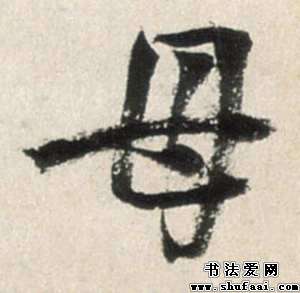 母
书法爱网
www.shufaai.com